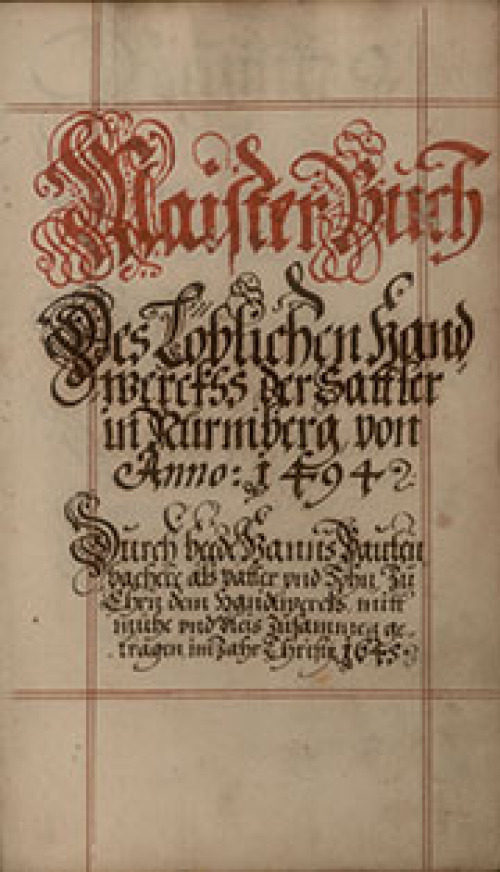 Maister Buch
Des Loblichen Hand
werckss der Sattler
in Nurmberg von
Anno: 1494.
Durch beede Hanns Pauten
bachere als vatter vnd Sohn, Zu
Ehrn dem Handtwercks mitt
mühe vnd vleis Zusammen ge-
tragen im Jahr Christi, 1645.